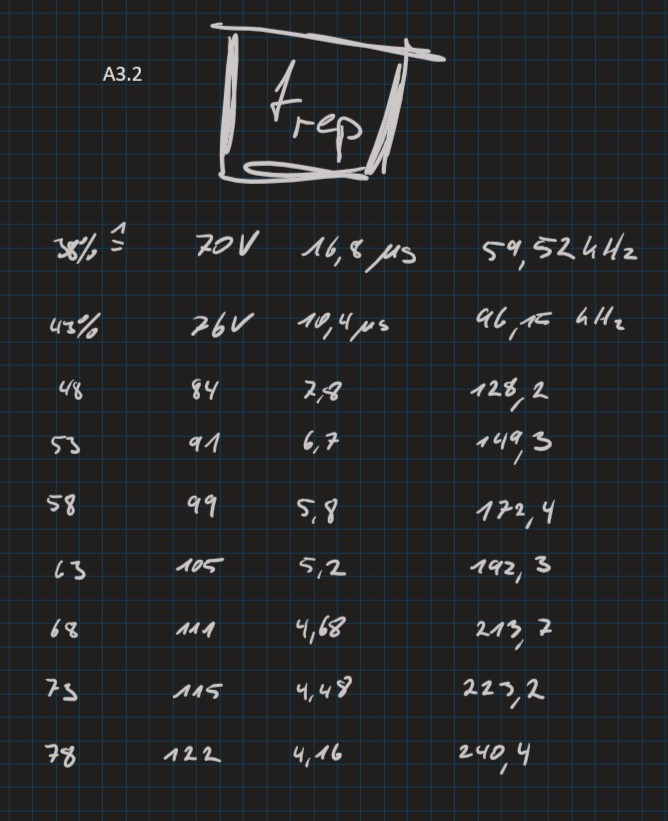 A3.2
f rep
38% ≙ 70V 16,8 µs 59,52 kHz
43% 76V 10,4 µs 96,15 kHz
48 84 7,8 128,2
53 91 6,7 149,3
58 99 5,8 172,4
63 105 5,2 192,3
68 111 4,68 213,7
73 115 4,48 223,2
78 122 4,16 240,4